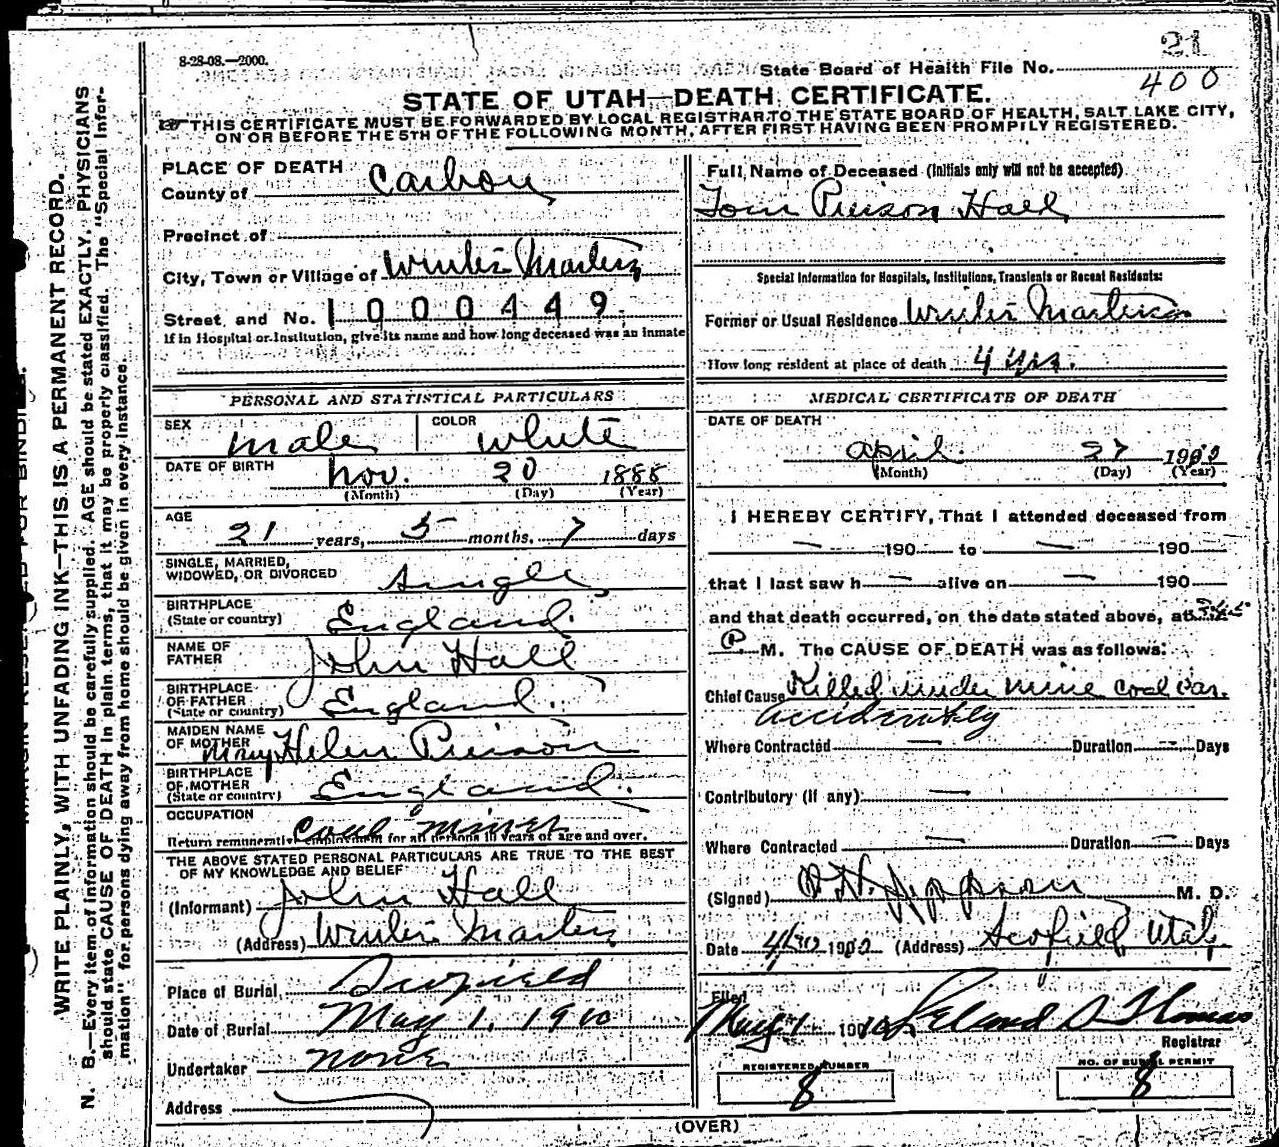 21
8-28-08.—2000.
State Board of Health File No.
400
STATE OF UTAH—DEATH CERTIFICATE.
THIS CERTIFICATE MUST BE FORWARDED BY LOCAL REGISTRAR TO THE STATE BOARD OF HEALTH, SALT LAKE CITY,
ON OR BEFORE THE 5TH OF THE FOLLOWING MONTH, AFTER FIRST HAVING BEEN PROMPILY REGISTERED.
WRITE PLAINLY, WITH UNFADING INK—THIS IS A PERMANENT RECORD.
N. B.—Every item of information should be carefully supplied. AGE should be stated EXACTLY. PHYSICIANS
should state CAUSE OF DEATH in plain terms, that it may be properly classified. The "Special Infor-
mation" for persons dying away from home should be given in every instance.
PLACE OF DEATH
County of Carbon
Precinct of
City, Town or Village of Winter
Street and No. 1000449
If in Hospital or Institution, give its name and how long deceased was an inmate
PERSONAL AND STATISTICAL PARTICULARS
SEX male COLOR white
DATE OF BIRTH Nov. 20 1888
(Month) (Day) (Year)
AGE 21 years, 5 months, 7 days
SINGLE, MARRIED,
WIDOWED, OR DIVORCED Single
BIRTHPLACE
(State or country) England
NAME OF
FATHER John Hall
BIRTHPLACE
OF FATHER
(State or country) England
MAIDEN NAME
OF MOTHER Mary Helen Pierson
BIRTHPLACE
OF MOTHER
(State or country) England
OCCUPATION Coal miner
Return remunerative employment for all persons 10 years of age and over.
THE ABOVE STATED PERSONAL PARTICULARS ARE TRUE TO THE BEST
OF MY KNOWLEDGE AND BELIEF
(Informant) John Hall
(Address) Winter
Place of Burial Scofield
Date of Burial May 1, 1910
Undertaker none
Address
Full Name of Deceased (Initials only will not be accepted)
Tom Pierson Hall
Special Information for Hospitals, Institutions, Transients or Recent Residents:
Former or Usual Residence Winter
How long resident at place of death 4 yrs.
MEDICAL CERTIFICATE OF DEATH
DATE OF DEATH
April 27 1910
(Month) (Day) (Year)
I HEREBY CERTIFY, That I attended deceased from
— 190 to — 190
that I last saw h — alive on — 190
and that death occurred, on the date stated above, at 3:45
P M. The CAUSE OF DEATH was as follows:
Chief Cause Killed under mine coal car.
accidentally
Where Contracted — Duration — Days
Contributory (if any) —
Where Contracted — Duration — Days
(Signed) M. D.
Date (Address) Scofield, Utah
Filed
May 1 1910 Leland D Thomas
Registrar
REGISTERED NUMBER
8
NO. OF BURIAL PERMIT
8
(OVER)